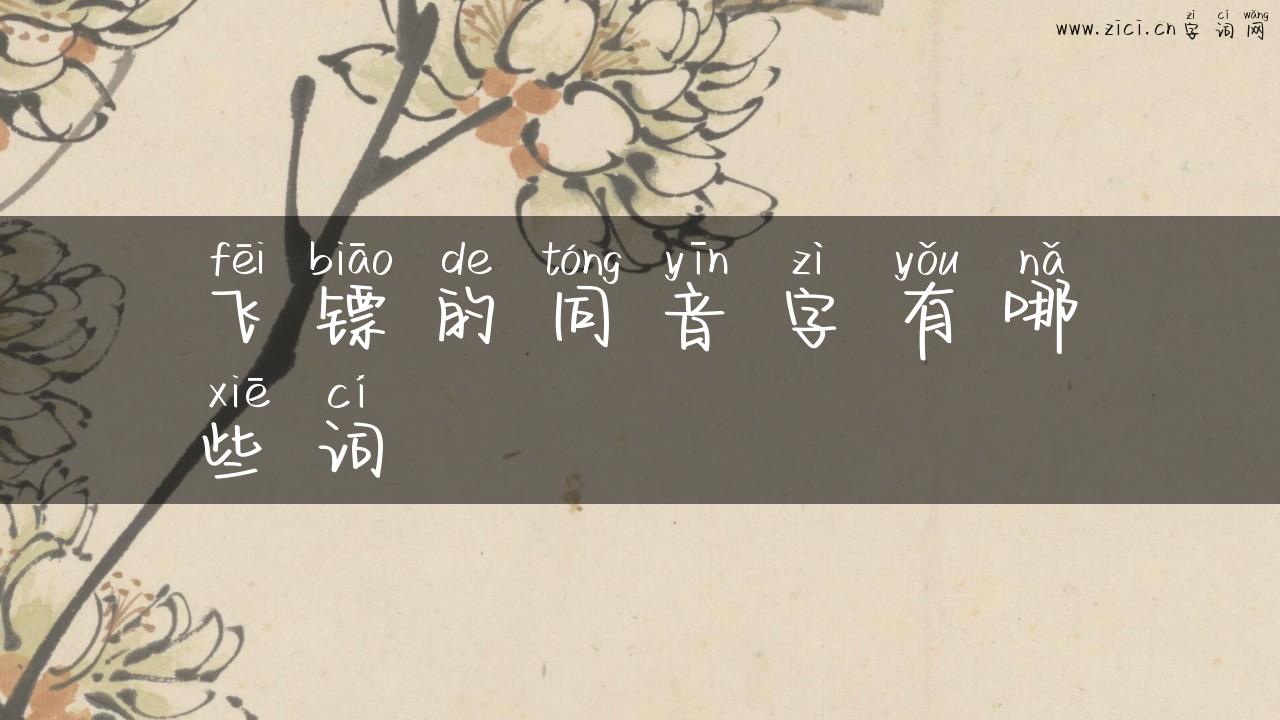 zì cí wǎng
www.zici.cn 字词网
fēi biāo de tóng yīn zì yǒu nǎ
飞镖的同音字有哪
xiē cí
些词